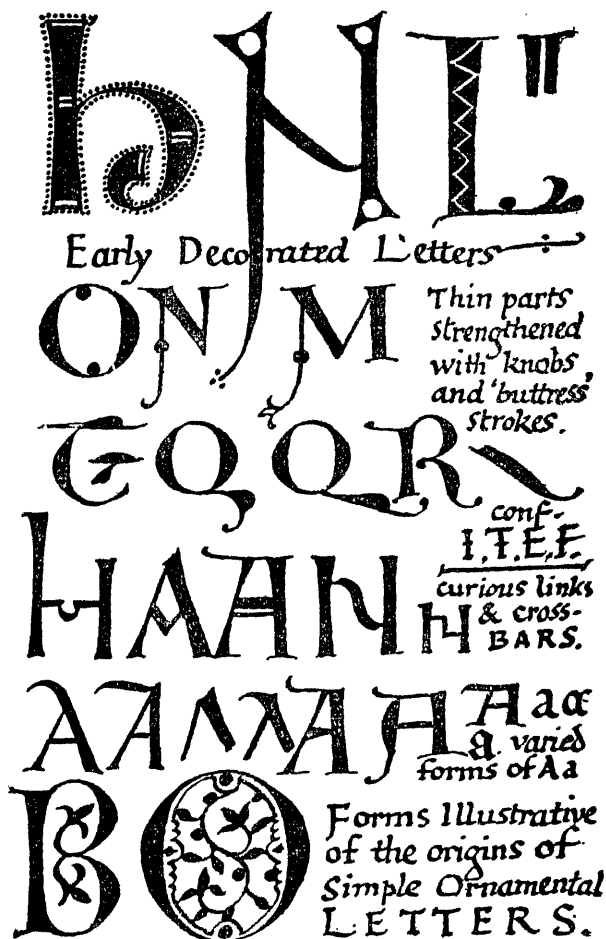 h N L "
Early Decorated Letters
O N M
Thin parts
strengthened
with knobs,
and 'buttress'
strokes.
E Q Q R
conf-
I.T.E.F.
H A A N
curious links
H & cross-
BARS.
A A Λ Λ A A A a α
a varied
forms of A a
B O
Forms Illustrative
of the origins of
Simple Ornamental
LETTERS.